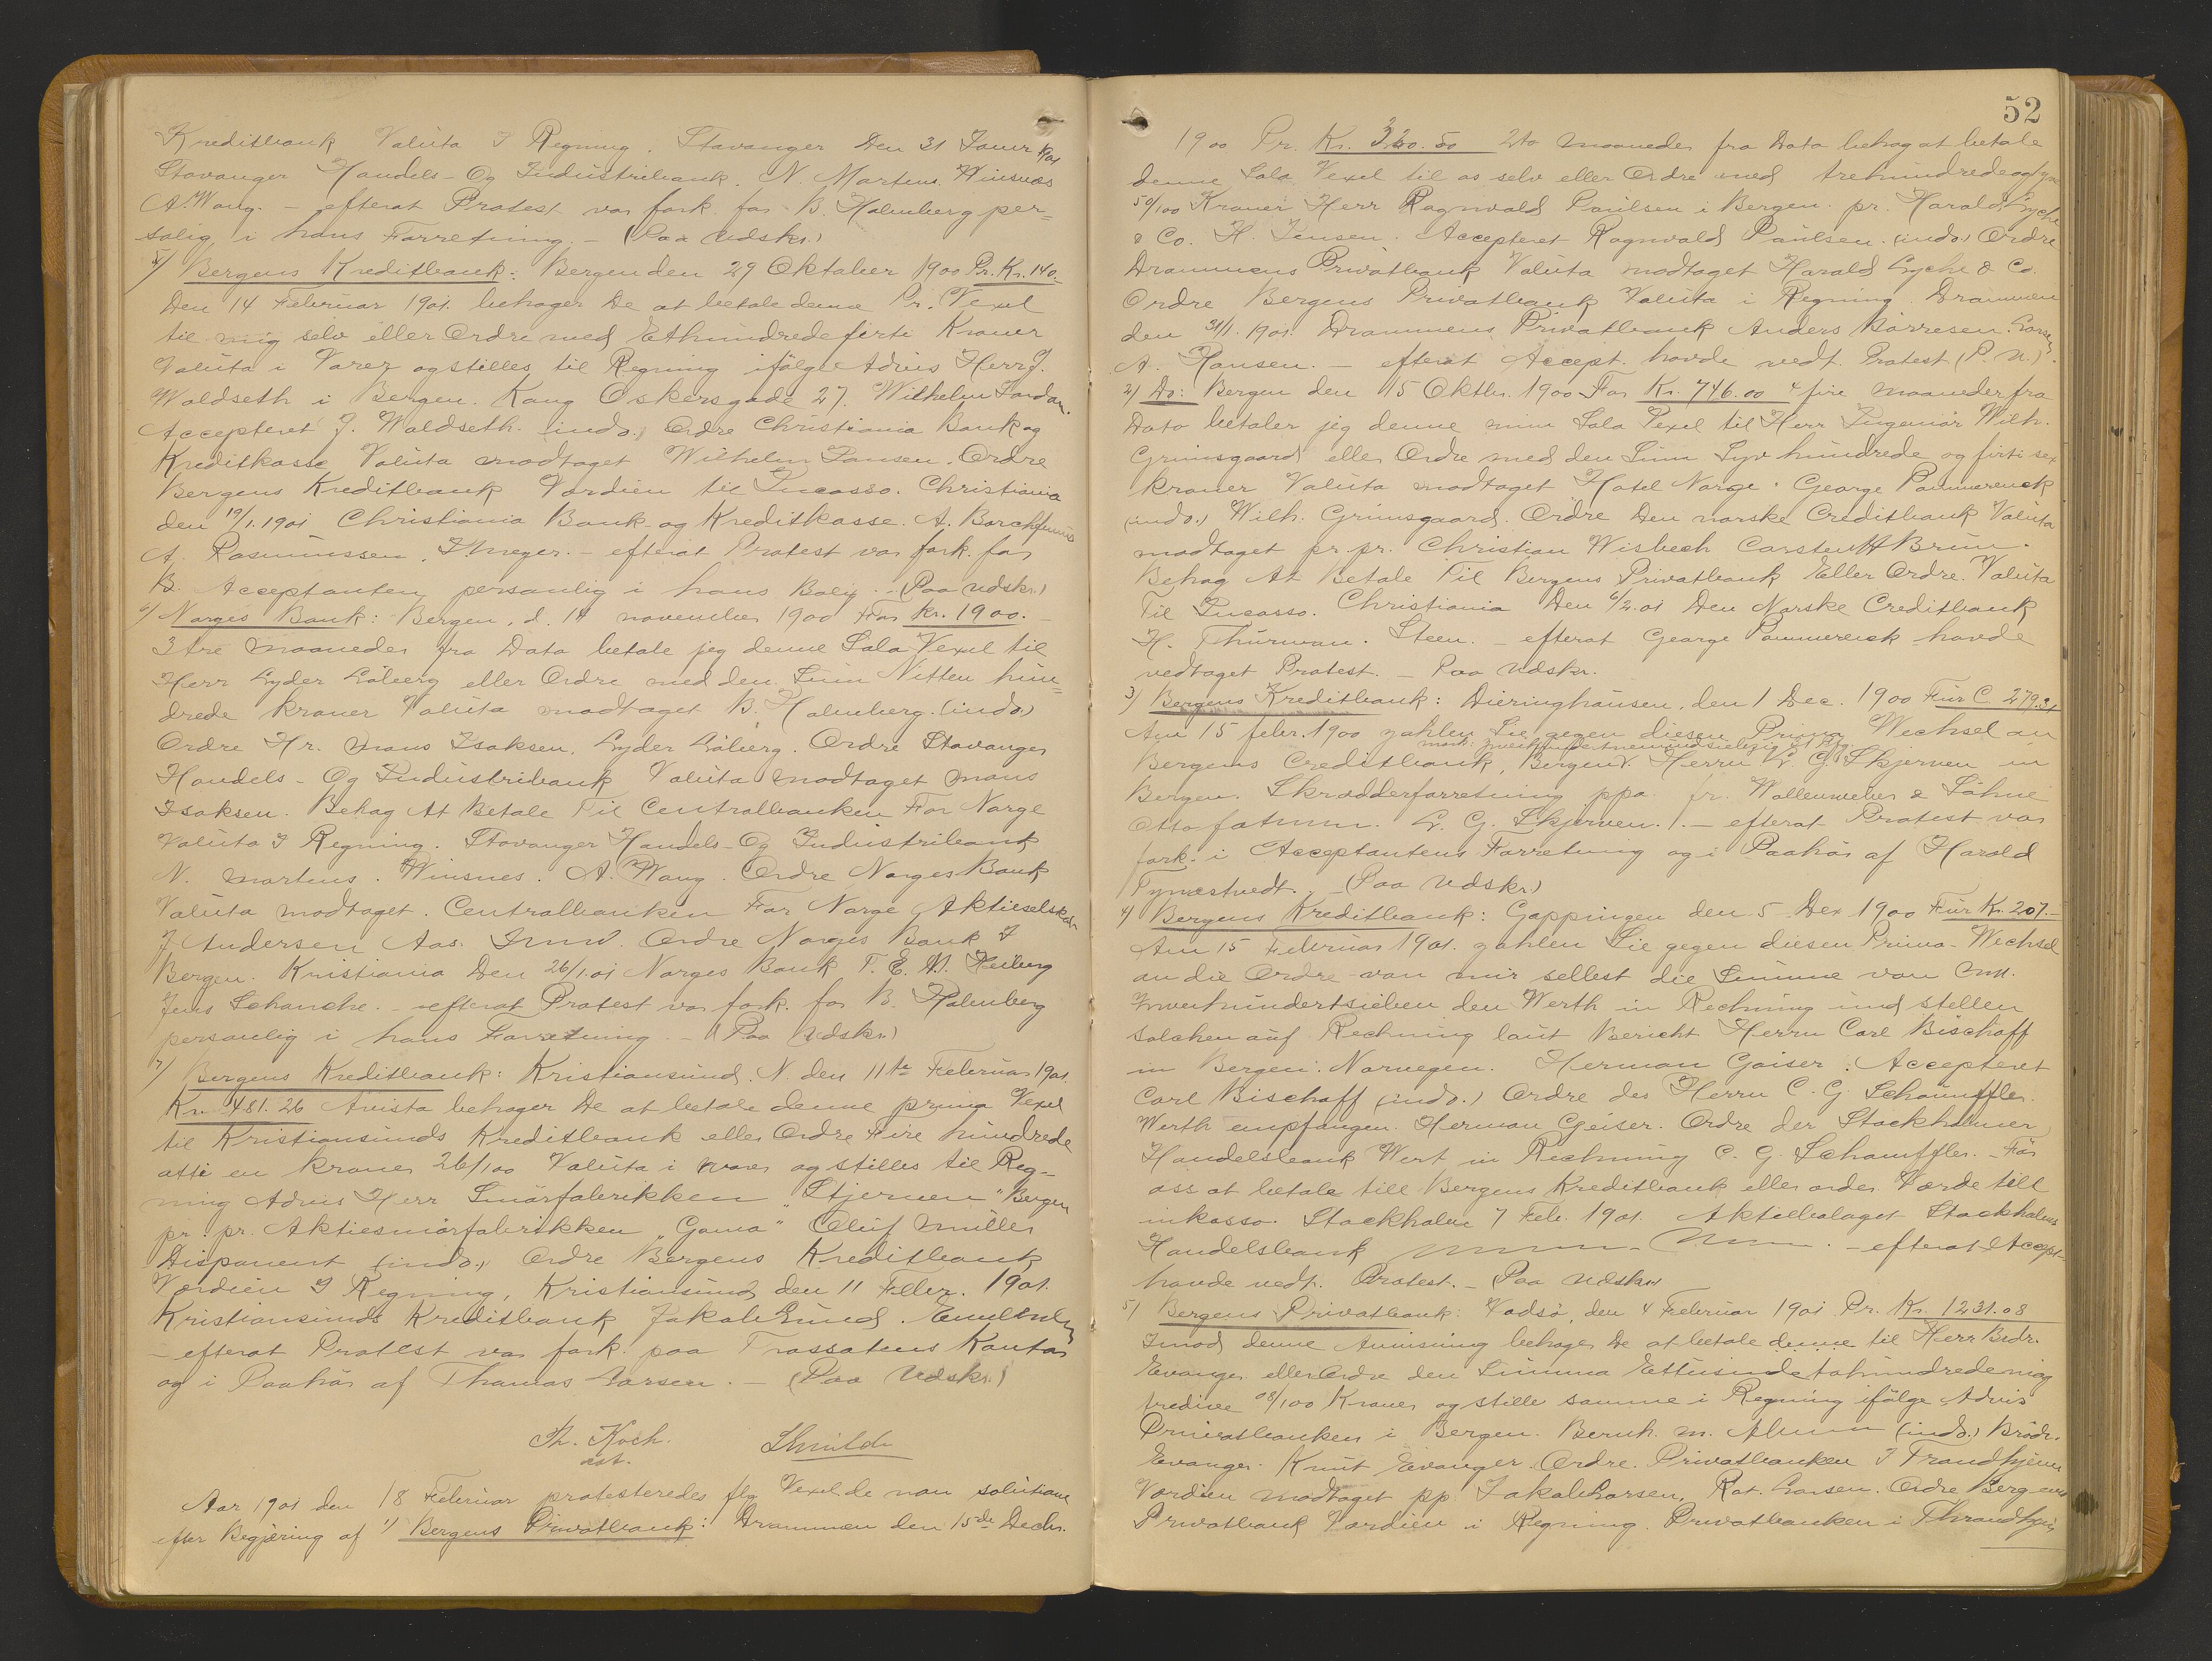 Kreditbank Valuta I Regning. Stavanger Den 31 Januar 1901
Stavanger Handels- Og Industribank. N. Martens. Winsnes
A. Wang. - efterat Protest var fork. for B. Holmberg per=
solig i hans Forretning. - (Paa Udskr.)
5) Bergens Kreditbank: Bergen den 29 Oktober 1900 Pr. Kr. 140.
Den 14 Februar 1901. behager De at betale denne Pr. Vexel
til mig selv eller Ordre med Ethundredeførti Kroner
Valuta i Varer og stilles til Regning ifølge Advis Herr J.
Waldseth i Bergen. Kong Oskarsgade 27. Wilhelm
Accepteret J. Waldseth. (indo.) Ordre Christiania Bank og
Kreditkasse Valuta modtaget Wilhelm Ordre
Bergens Kreditbank Værdien til Incasso. Christiania
den 19/1.1901 Christiania Bank- og Kreditkasse. A.
A. Rasmussen. - efterat Protest var fork. for
B. Acceptanten personlig i hans Bolig. - (Paa Udskr.)
6) Norges Bank: Bergen, d. 14 november 1900 For Kr. 1900.-
3 tre maaneder fra Dato betale jeg denne Sola Vexel til
Herr Lyder Löberg eller Ordre med den Sum Nitten hun=
drede kroner Valuta modtaget B. Holmberg. (indo.)
Ordre Hr. Mons Isaksen. Lyder Löberg. Ordre Stavanger
Handels- Og Industribank Valuta modtaget Mons
Isaksen. Behag At Betale Til Centralbanken For Norge
Valuta I Regning. Stavanger Handels- Og Industribank
N. Martens. Winsnes. A. Wang. Ordre Norges Bank
Valuta modtaget. Centralbanken For Norge Aktieselskab
J Andersen Aas. Ordre Norges Bank I
Bergen. Kristiania Den 26/1.01 Norges Bank T. E. M. Heiberg
Jens Schanche. - efterat Protest var fork. for B. Holmberg
personlig i hans Forretning. - (Paa Udskr.)
7) Bergens Kreditbank: Kristiansund. N. den 11te Februar 1901.
Kr. 481.26 Avista behager De at betale denne prima Vexel
til Kristiansunds Kreditbank eller Ordre Fire hundrede
otti en kroner 26/100 Valuta i varer og stilles til Reg-
ning Advis Herr Smörfabrikken "Stjernen" Bergen
pr. pr. Aktiesmörfabrikken "Goma" Oluf Müller
Disponent (indo.) Ordre Bergens Kreditbank
Værdien I Regning. Kristiansund den 11 Febr. 1901.
Kristiansunds Kreditbank Jakob Lund.
- efterat Protest var fork. paa Trassatens Kontor
og i Paahør af Thomas Larsen. - (Paa Udskr.)
Th. Koch.
ast.
Aar 1901 den 18 Februar protesteredes flg Vexel de non solutione
efter Begjæring af 1) Bergens Privatbank: Drammen den 15de Decbr.
52
1900 Pr. Kr. 320.50 2to maaneder fra Dato behag at betale
denne Sola Vexel til os selv eller Ordre med trehundredeogtyve
50/100 Kroner Herr Ragnvald Paulsen i Bergen. pr. Harald Lyche
& Co. H. Jensen. Accepteret Ragnvald Paulsen. (indo.) Ordre
Drammens Privatbank Valuta modtaget Harald Lyche & Co.
Ordre Bergens Privatbank Valuta i Regning Drammen
den 31/1. 1901. Drammens Privatbank Anders Börresen.
A. Hansen. - efterat Accept. havde vedt. Protest (P. U.).
2) Do: Bergen den 15 Oktbr. 1900 For Kr. 746.00 4 fire maaneder fra
Dato betaler jeg denne min Sola Vexel til Herr Ingeniør Wilh.
Grimsgaard eller Ordre med den Sum Syv hundrede og førti sex
kroner Valuta modtaget Hotel Norge. George Pommerenck
(indo.) Wilh. Grimsgaard. Ordre Den norske Creditbank Valuta
modtaget pr. pr. Christian Wisbech Carsten H Bruun.
Behag At Betale Til Bergens Privatbank Eller Ordre. Valuta
Til Incasso. Christiania Den 6/2.01 Den Norske Creditbank
H. Thurman. Steen. - efterat George Pommerenck havde
vedtaget Protest. - Paa Udskr.
3) Bergens Kreditbank: Dieringhausen, den 1 Dec. 1900 Für C. 279.31
Am 15 febr. 1900 zahlen Sie gegen diesen Prima Wechsel an
Mark: zweihundertneunundsiebzig
Bergens Creditbank, Bergen. Herrn L. G. Skjerven in
Bergen. Skrædderforretning ppa. fr. Wollenweber & Söhne
Otto L. G. Skjerven. - efterat Protest var
fork. i Acceptantens Forretning og i Paahør af Harald
Tynæstvedt. - (Paa Udskr.)
4) Bergens Kreditbank: Göppingen den 5 Dez 1900 Für Kr. 207.-
Am 15 Februar 1901. zahlen Sie gegen diesen Prima-Wechsel
an die Ordre von mir selbst die Summe von
Zweihundertsieben den Werth in Rechnung und stellen
solchen auf Rechnung laut Bericht Herrn Carl Bischoff
in Bergen: Norwegen. Herman Gaiser. Accepteret
Carl Bischoff (indo.) Ordre des Herrn C. G. Schauffler.
Werth empfangen. Herman Geiser. Ordre der Stockholmer
Handelsbank Wert in Rechnung C. G. Schauffler. - För
oss at betale till Bergens Kreditbank eller order Værde till
inkasso. Stockholm 7 Feb. 1901. Aktiebolaget Stockholms
Handelsbank - efterat Accept.
havde vedt. Protest. - (Paa Udskr.)
5) Bergens Privatbank: Vadsö, den 4 Februar 1901 Pr. Kr. 1231.08
Imod denne Anvisning behager De at betale denne til Herr Brdr.
Evanger eller Ordre den Summa Ettusindetohundredeniog
tredive 08/100 Kroner og stille samme i Regning ifølge Advis
Privatbanken i Bergen. Bernh. M. (indo.) Brödr.
Evanger. Knut Evanger. Ordre. Privatbanken I Trondhjem
Værdien modtaget pp. Jakob Larsen, Larsen. Ordre Bergens
Privatbank Værdien i Regning. Privatbanken i Throndhjem